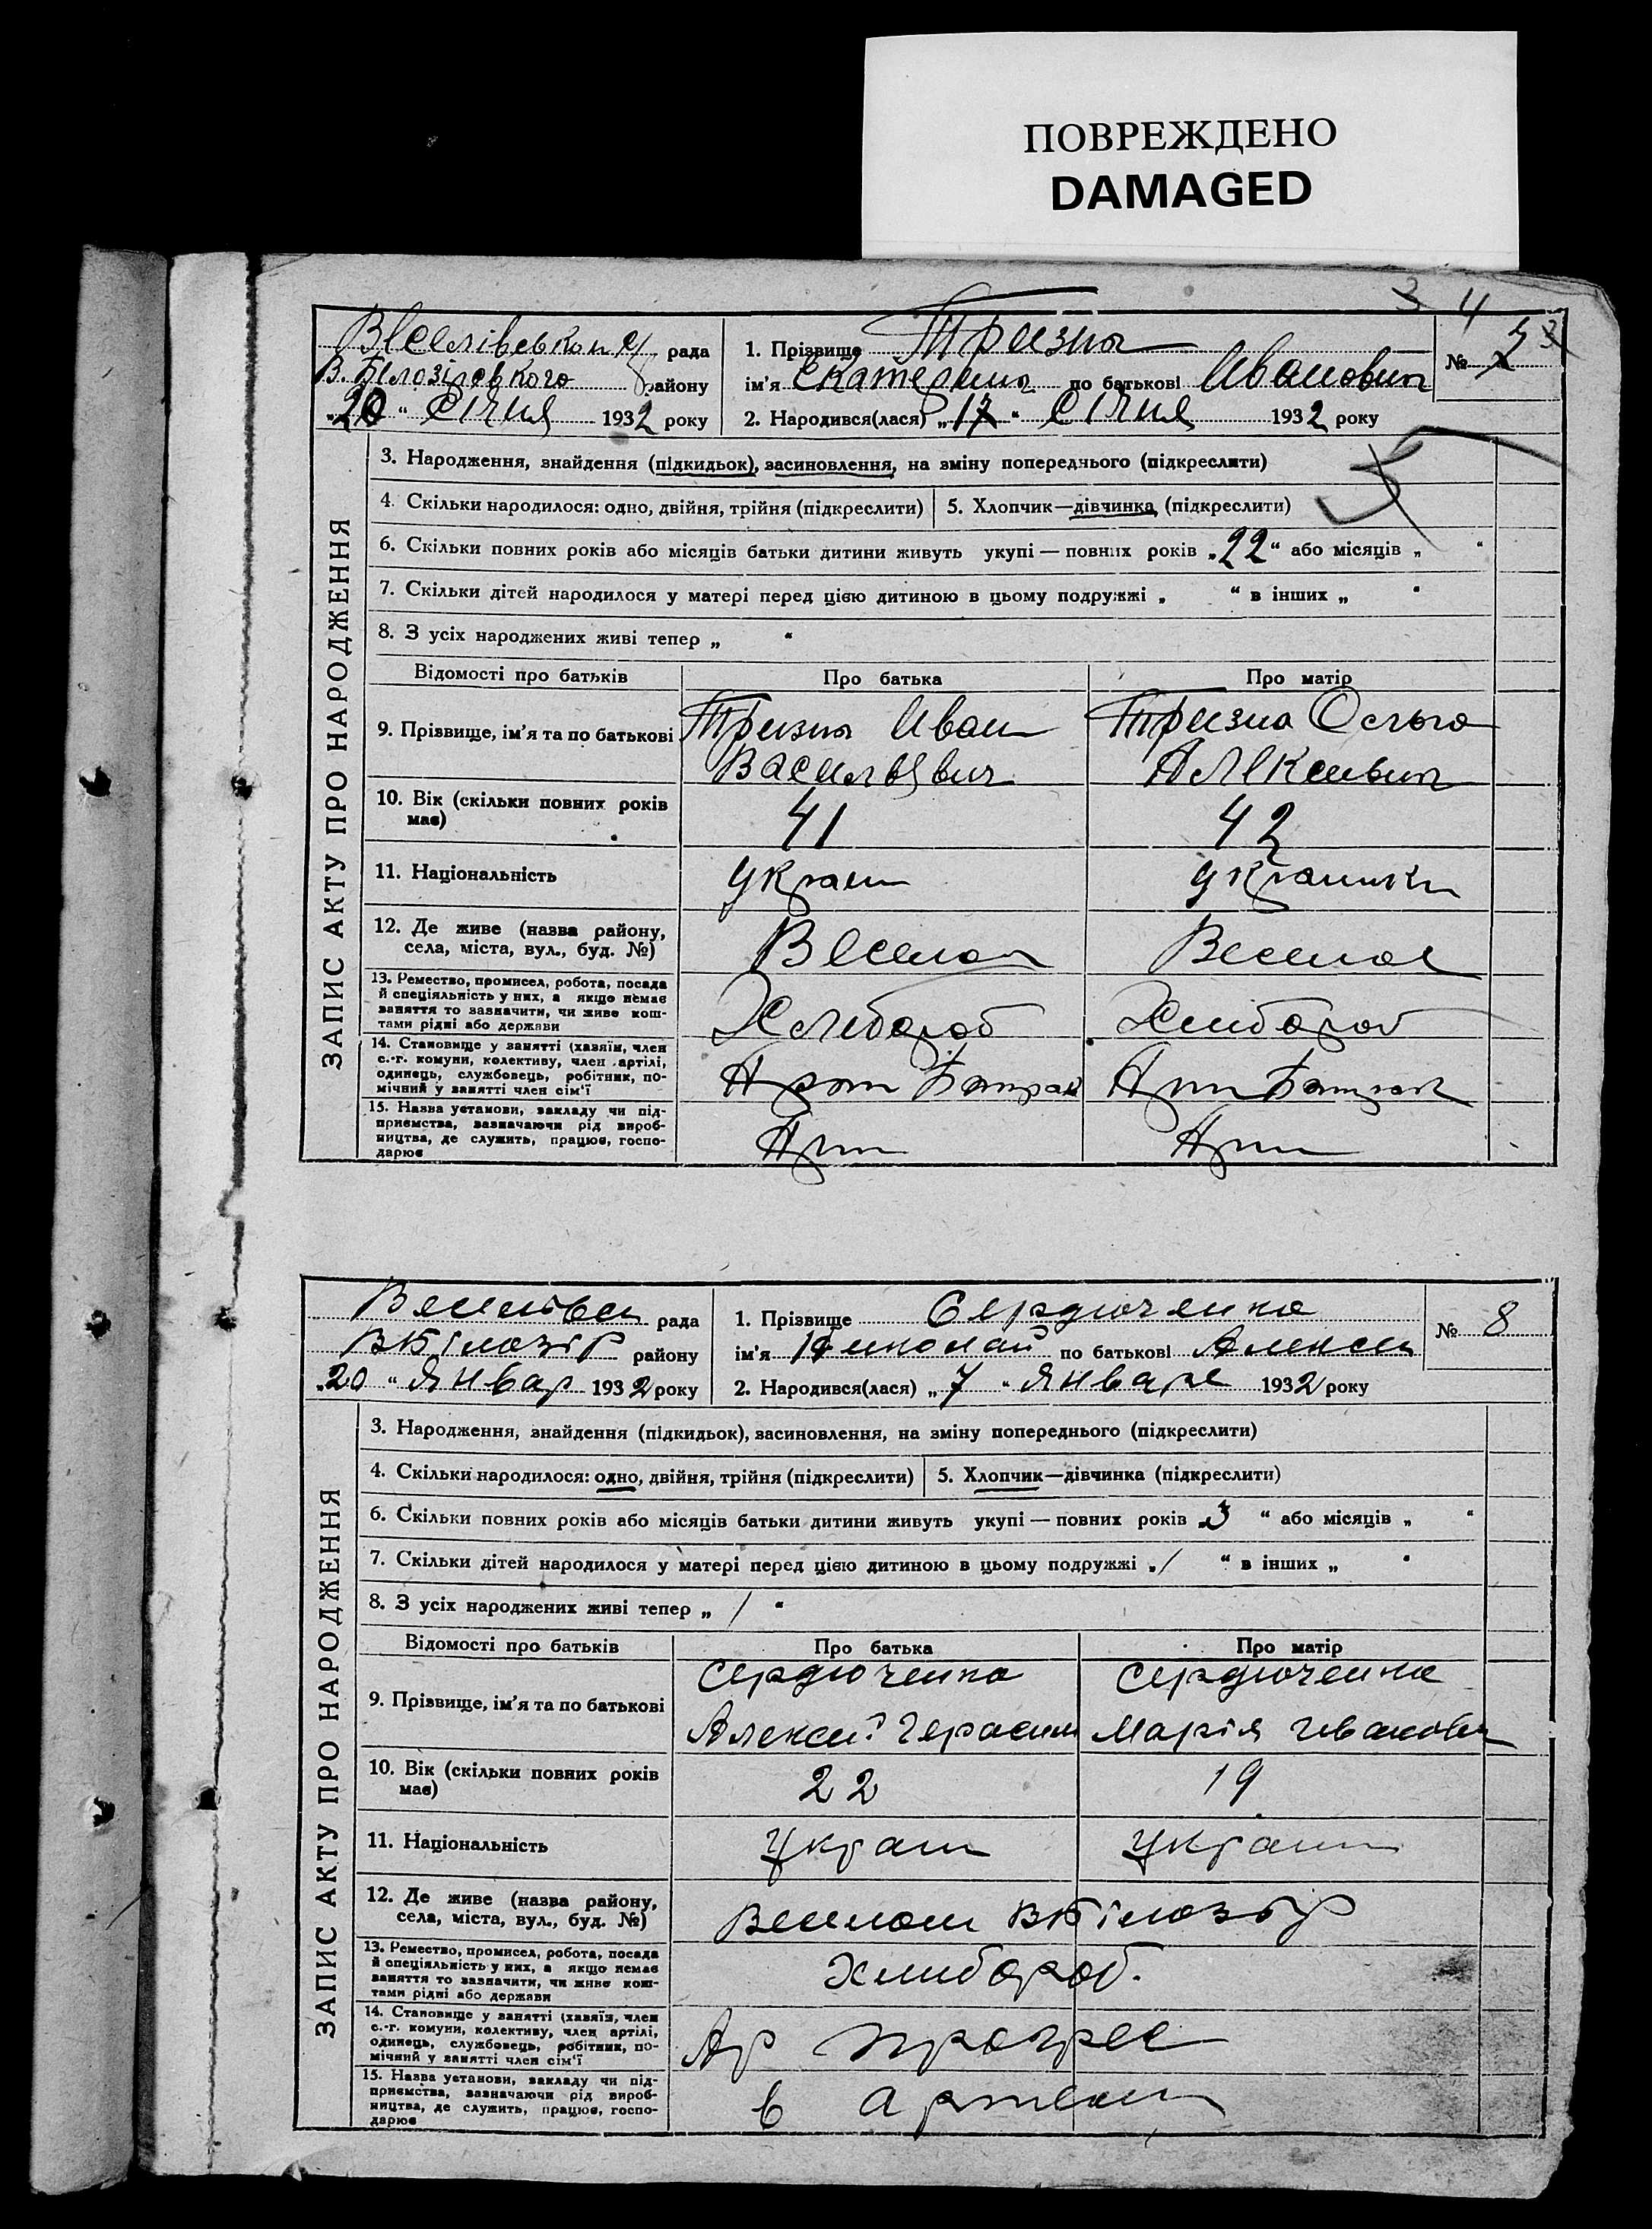 ПОВРЕЖДЕНО
DAMAGED
3 4
Веселівської рада
В. Білозірського району
„20“ січня 1932 року
1. Прізвище Тризна
ім'я Екатерина по батькові Ивановна
2. Народився(лася) „17“ січня 1932 року
№
ЗАПИС АКТУ ПРО НАРОДЖЕННЯ
3. Народження, знайдення (підкидьок), засиновлення, на зміну попереднього (підкреслити)
4. Скільки народилося: одно, двійня, трійня (підкреслити)
5. Хлопчик—дівчинка (підкреслити)
6. Скільки повних років або місяців батьки дитини живуть укупі — повних років „22“ або місяців „ “
7. Скільки дітей народилося у матері перед цією дитиною в цьому подружжі „ “ в інших „ “
8. З усіх народжених живі тепер „ “
Відомості про батьків Про батька Про матір
9. Прізвище, ім'я та по батькові
Тризна Иван
Васильевич
Тризна Ольга
Алексеевна
10. Вік (скільки повних років має) 41 42
11. Національність Украин Украинка
12. Де живе (назва району, села, міста, вул., буд. №) Веселое Веселое
13. Ремество, промисел, робота, посада
й спеціяльність у них, а якщо немає
заняття то зазначити, чи живе кош-
тами рідні або держави
Хлебороб Хлебороб
14. Становище у занятті (хазяїн, член
с.-г. комуни, колективу, член артілі,
одинець, службовець, робітник, по-
мічний у занятті член сім'ї
Арт Батрак Арт Батрак
15. Назва установи, закладу чи під-
приємства, зазначаючи рід вироб-
ництва, де служить, працює, госпо-
дарює
Арт Арт
Веселівська рада
ВБілозір району
„20“ Январ 1932 року
1. Прізвище Сердюченко
ім'я Николай по батькові Алексеи
2. Народився(лася) „7“ Января 1932 року
№ 8
ЗАПИС АКТУ ПРО НАРОДЖЕННЯ
3. Народження, знайдення (підкидьок), засиновлення, на зміну попереднього (підкреслити)
4. Скільки народилося: одно, двійня, трійня (підкреслити)
5. Хлопчик—дівчинка (підкреслити)
6. Скільки повних років або місяців батьки дитини живуть укупі — повних років „3“ або місяців „ “
7. Скільки дітей народилося у матері перед цією дитиною в цьому подружжі „/ “ в інших „ “
8. З усіх народжених живі тепер „ / “
Відомості про батьків Про батька Про матір
9. Прізвище, ім'я та по батькові
Сердюченко
Алексей Герасим
Сердюченко
Марія Ивановн
10. Вік (скільки повних років має) 22 19
11. Національність Украин Украин
12. Де живе (назва району, села, міста, вул., буд. №) Веселом ВБілозір
13. Ремество, промисел, робота, посада
й спеціяльність у них, а якщо немає
заняття то зазначити, чи живе кош-
тами рідні або держави
Хлибороб.
14. Становище у занятті (хазяїн, член
с.-г. комуни, колективу, член артілі,
одинець, службовець, робітник, по-
мічний у занятті член сім'ї
Ар прогрес
15. Назва установи, закладу чи під-
приємства, зазначаючи рід вироб-
ництва, де служить, працює, госпо-
дарює
в артели